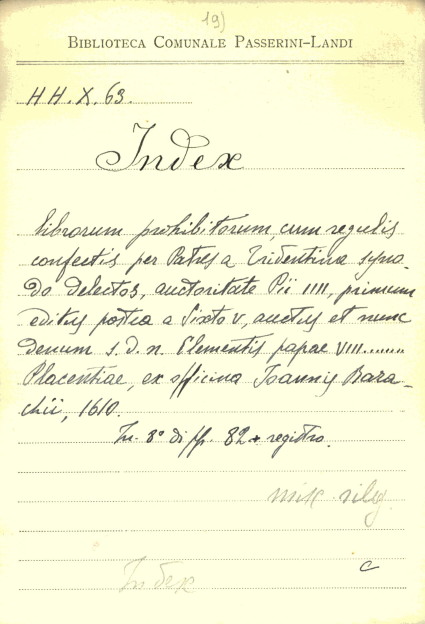 19)
BIBLIOTECA COMUNALE PASSERINI-LANDI
HH. X. 63.
Index
librorum prohibitorum, cum regulis
confectis per Patres a Tridentina syno-
do delectos, auctoritate Pii IIII, primum
editus postea a Sixto V, auctus et nunc
demum s. d. n. Clementis papae VIII........
Placentiae, ex officina Joannis Bara-
chii, 1610.
In. 8° di ff. 82 + registro.
misc. rileg.
Index
C